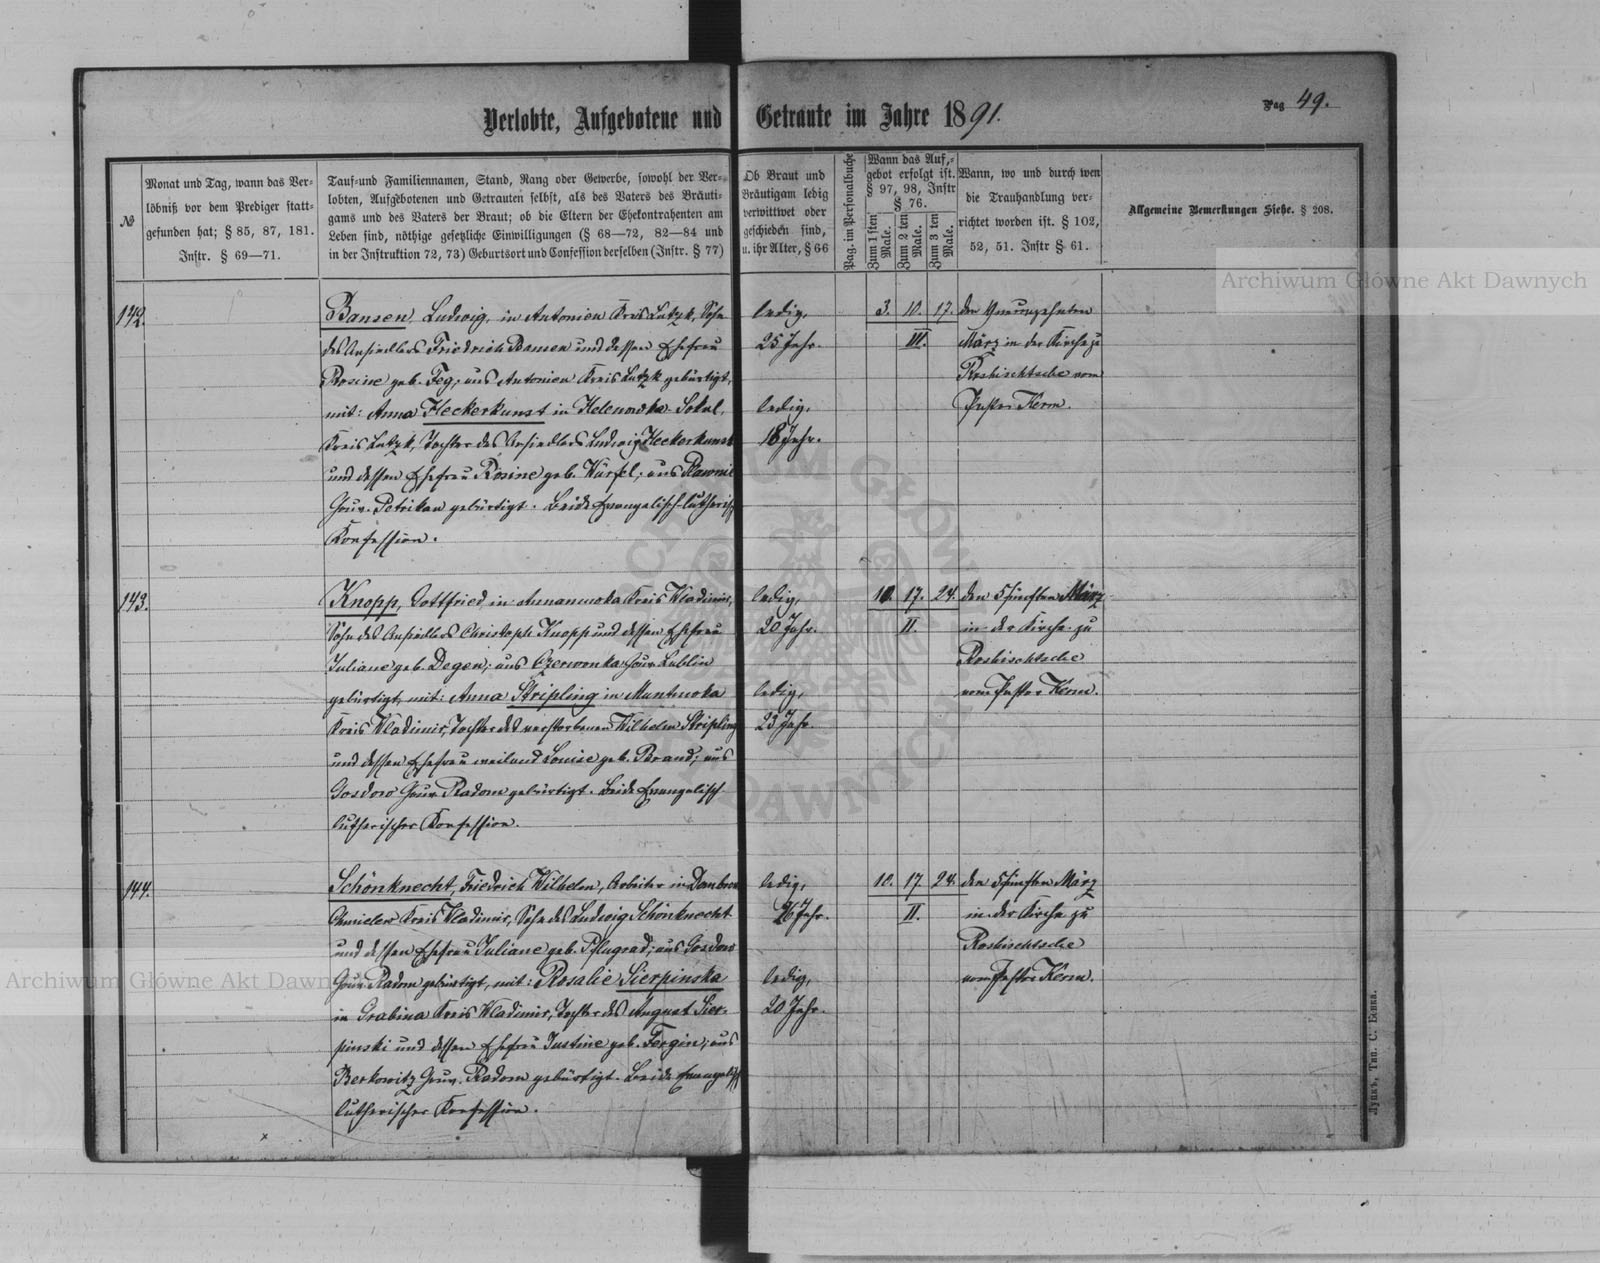 Verlobte, Aufgebotene und Getraute im Jahre 1891.
Pag 49.
№
Monat und Tag, wann das Ver-
löbniß vor dem Prediger statt-
gefunden hat; § 85, 87, 181.
Instr. § 69—71.
Tauf- und Familiennamen, Stand, Rang oder Gewerbe, sowohl der Ver-
lobten, Aufgebotenen und Getrauten selbst, als des Vaters des Bräuti-
gams und des Vaters der Braut; ob die Eltern der Ehekontrahenten am
Leben sind, nöthige gesetzliche Einwilligungen (§ 68—72, 82—84 und
in der Instruktion 72, 73) Geburtsort und Confession derselben (Instr. § 77)
Ob Braut und
Bräutigam ledig
verwittwet oder
geschieden sind,
u. ihr Alter, § 66
Pag. im Personalbuche
Wann das Auf-
gebot erfolgt ist.
§ 97, 98, Instr
§ 76.
Zum 1 ten Male.
Zum 2 ten Male.
Zum 3 ten Male.
Wann, wo und durch wen
die Trauhandlung ver-
richtet worden ist. § 102,
52, 51. Instr § 61.
Allgemeine Bemerkungen Siehe. § 208.
142.
Bansen, Ludwig, in Antonien Kreis Lutzk, Sohn
des Ansiedlers Friedrich Bansen und dessen Ehefrau
Rosine geb. Feg; aus Antonien Kreis Lutzk gebürtigt,
mit: Anna Heckerkunst in Helenowka Sokul,
Kreis Lutzk, Tochter des Ansiedlers Ludwig Heckerkunst
und dessen Ehefrau Rosine geb. Würfel; aus
Gouv. Petrikau gebürtigt. Beide Evangelisch-lutherisch
Konfession.
ledig,
25 Jahr.
ledig,
18 Jahr.
3. 10. 17.
III.
den Neunzehnten
März in der Kirche zu
Roshischtsche vom
Pastor Kerm.
143.
Knopp, Gottfried in Kreis Wladimir,
Sohn des Ansiedlers Christoph Knopp und dessen Ehefrau
Juliane geb. Degen; aus Czerwonka Gouv. Lublin
gebürtigt, mit: Anna Stripling in
Kreis Wladimir, Tochter des verstorbenen Wilhelm Stripling
und dessen Ehefrau weiland Louise geb. Brand; aus
Gosdow Gouv. Radom gebürtigt. Beide Evangelisch
lutherischer Konfession.
ledig,
20 Jahr.
ledig,
23 Jahr.
10. 17. 24.
II.
den 5 fünften März
in der Kirche zu
Roshischtsche
vom Pastor Kerm.
144.
Schönknecht, Friedrich Wilhelm, Arbeiter in
Kreis Wladimir, Sohn des Ludwig Schönknecht
und dessen Ehefrau Juliane geb. Pflugrad; aus Gosdow
Gouv. Radom gebürtigt, mit: Rosalie Sierpinska
in Grabina Kreis Wladimir, Tochter des August Sier-
pinski und dessen Ehefrau Justine geb. Fergin; aus
Berkowitz Gouv. Radom gebürtigt. Beide Evangelisch
lutherischer Konfession.
ledig,
26 Jahr.
ledig,
20 Jahr.
10. 17. 24.
II.
den 5 fünften März
in der Kirche zu
Roshischtsche
vom Pastor Kerm.
Луцкъ, Тип. С. Бонка.
Archiwum Główne Akt Dawnych
Archiwum Główne Akt Dawnych
ARCHIWUM GŁÓWNE
AKT DAWNYCH